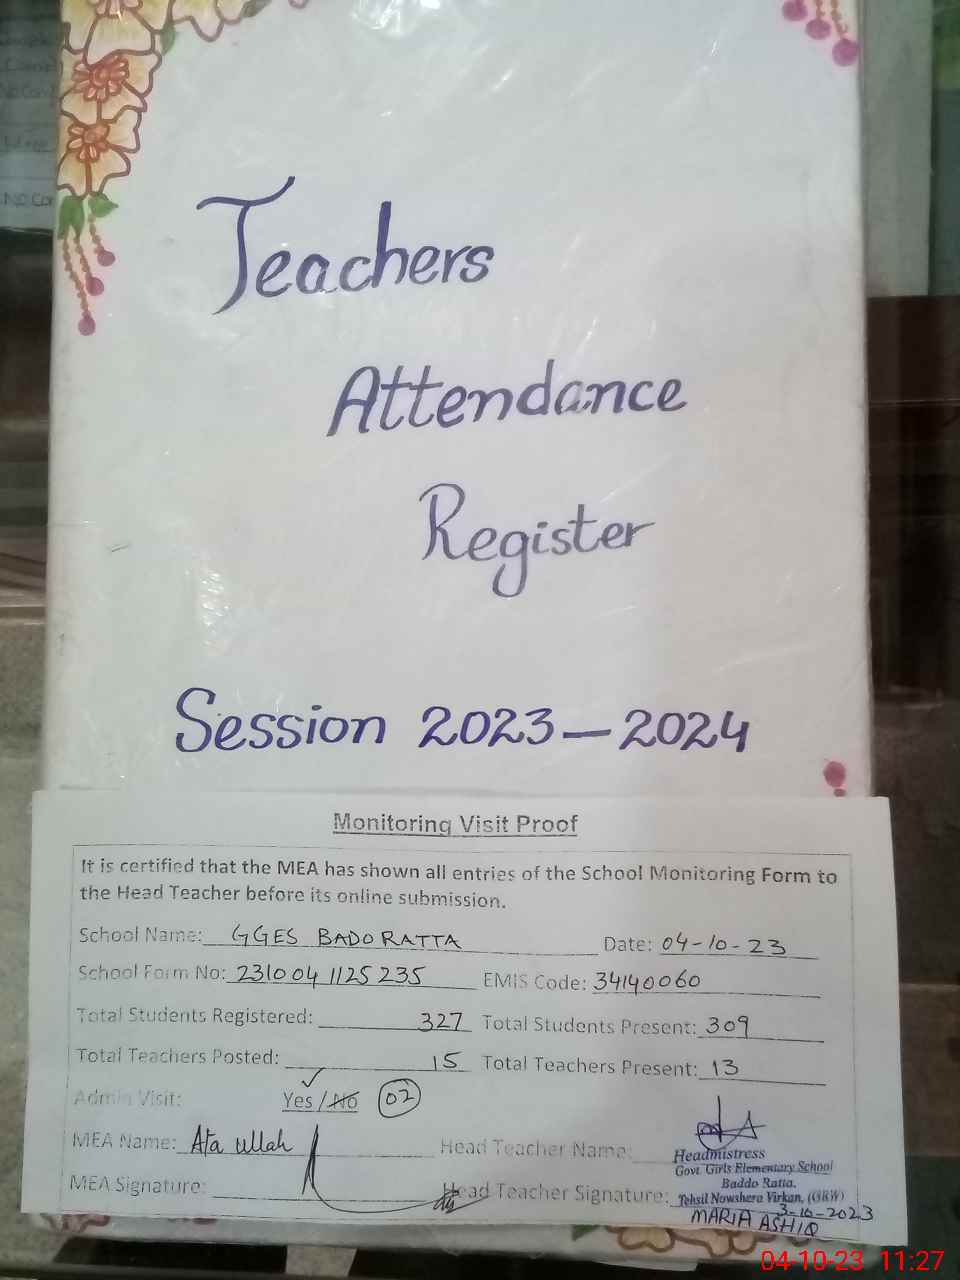 Teachers
Attendance
Register
Session 2023-2024
Monitoring Visit Proof
It is certified that the MEA has shown all entries of the School Monitoring Form to
the Head Teacher before its online submission.
School Name: GGES BADO RATTA Date: 04-10-23
School Form No: 231004 1125 235 EMIS Code: 34140060
Total Students Registered: 327 Total Students Present: 309
Total Teachers Posted: 15 Total Teachers Present: 13
Admin Visit: Yes / No 02
MEA Name: Ata ullah Head Teacher Name:
Headmistress
Govt Girls Elementary School
Baddo Ratta.
MEA Signature: Head Teacher Signature: Tehsil Nowshera Virkan, (GRW)
3-10-2023
MARIA ASHIQ
04-10-23 11:27